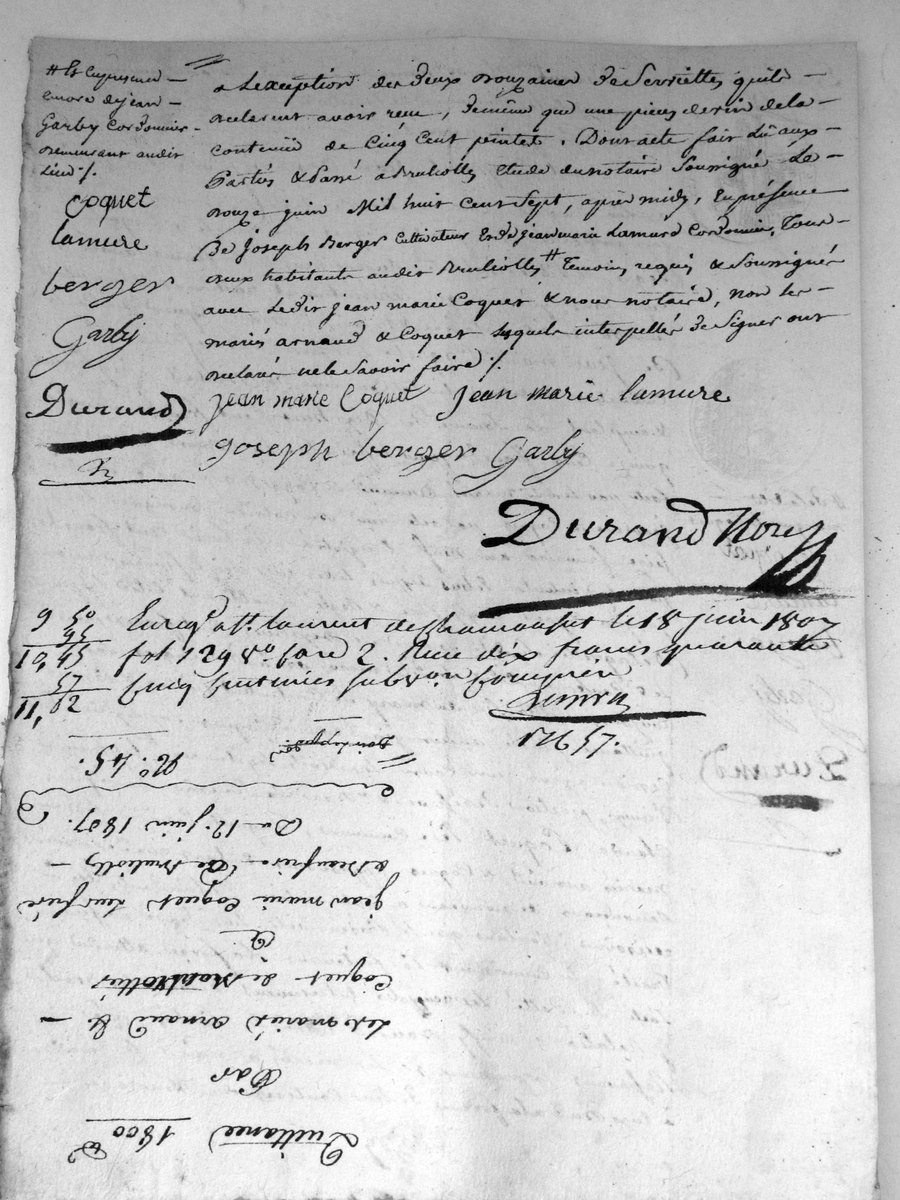 # Et En présence
encore de jean
Garby Cordonnier
demeurant audit
lieu ./.
Coquet
lamure
berger
Garby
Durand
a Lexception des deux douzaines de Serviettes quils
declarent avoir recu, de même que une piece de vin de la
contenüe de Cinq Cent peintes. Dont acte fait lû aux
Parties & Passé a Brulliolles Etude du notaire Soussigné Le
douze juin Mil huit Cent Sept, après midy, En présence
De Joseph Berger Cultivateur Et de Jean marie Lamure Cordonnier, Tous
deux habitants audit Brulliolles # Temoins requis & Soussignés
avec Ledit jean marie Coquet & nous notaire, non les
mariés arnaud & Coquet lesquels interpellés de Signer ont
declaré ne le Savoir faire ./.
jean marie Coquet jean marie lamure
joseph berger Garby
Durand Not
9 50
95
10,45
57
11,02
Enregé a St. laurent de chamousset le 18 juin 1807
fol 129 Vo Case 2. Recu dix francs quarante
Cinq centimes Subvon Comprise
No. 45.
Du 12. juin 1807.
a Beaufrere De Brulliolles
jean marie Coquet leur frere
A
Coquet de
Les mariés arnaud &
Par
Quittance 1800